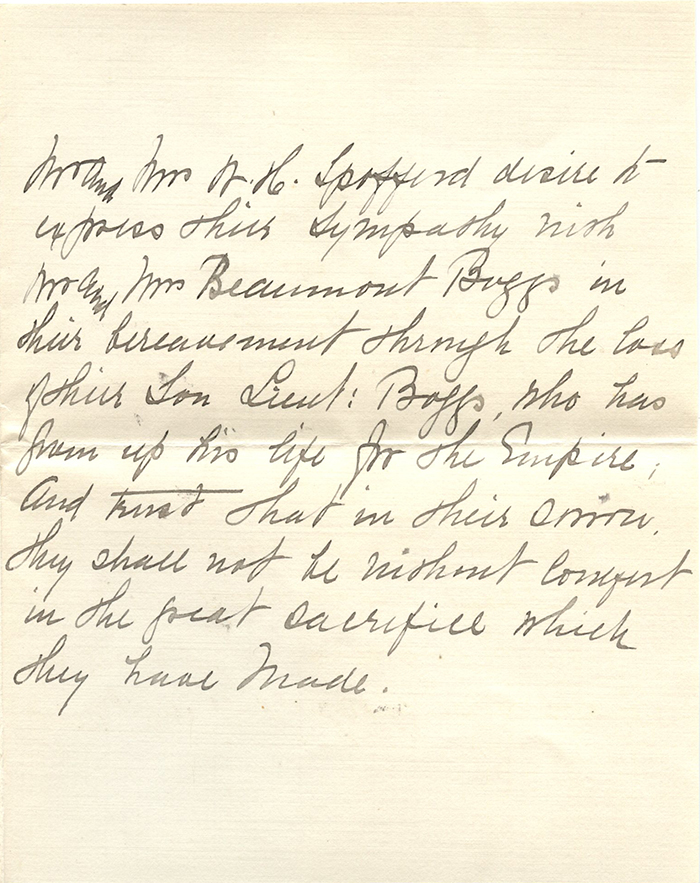 Mr and Mrs W. H. Spofferd desire to
express thier sympathy with
Mr and Mrs Beaumont Boggs in
thier bereavement through the loss
of thier Son Lieut: Boggs, who has
given up his life for the Empire;
and trust that in their sorrow,
they shall not be without comfort
in the great sacrifice which
they have made.